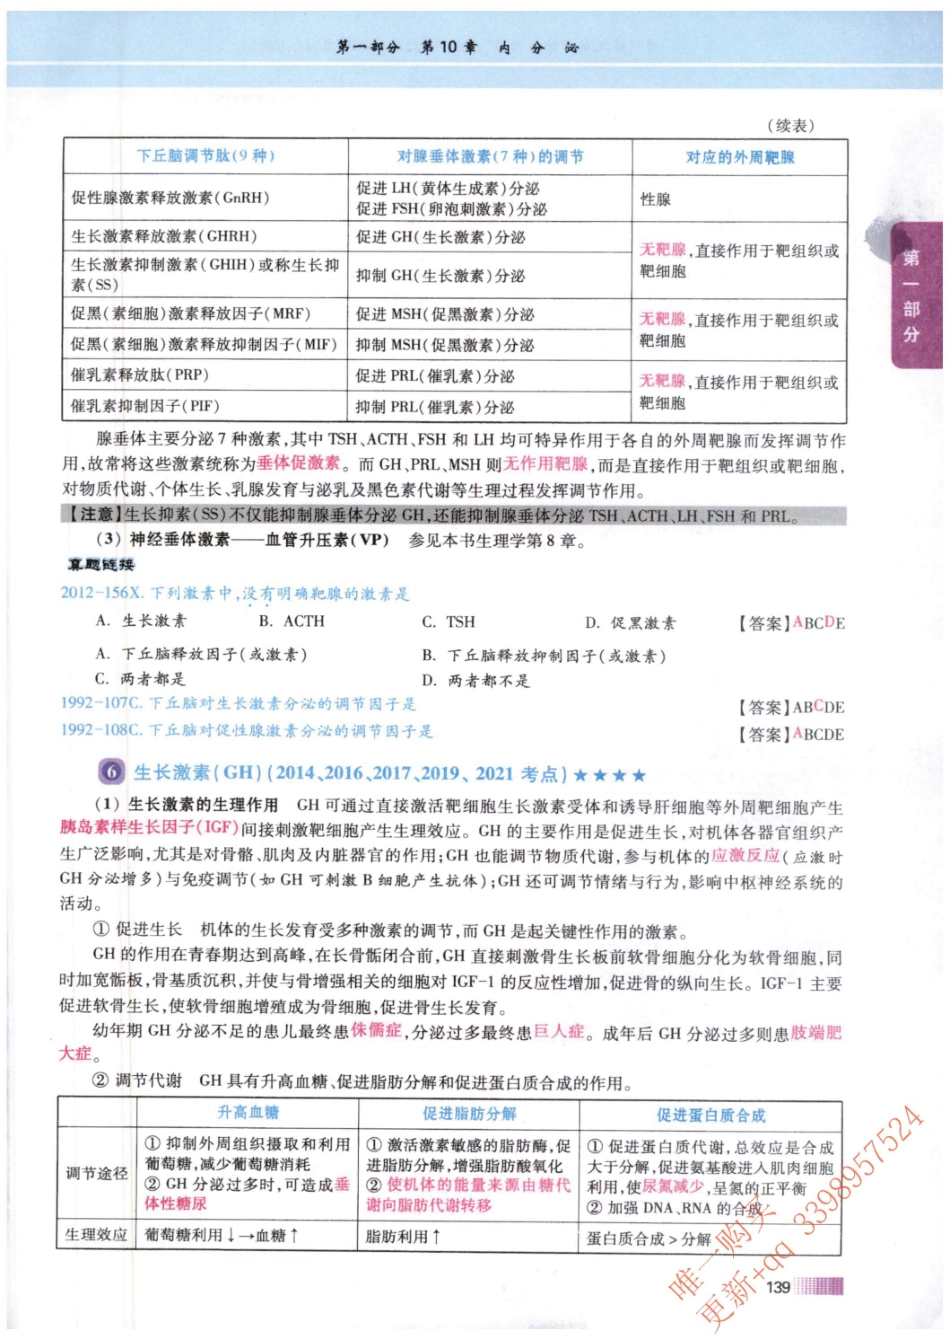 第一部分 第10章 内 分 泌
(续表)
下丘脑调节肽(9种) 对腺垂体激素(7种)的调节 对应的外周靶腺
促性腺激素释放激素(GnRH) 促进 LH(黄体生成素)分泌
促进 FSH(卵泡刺激素)分泌 性腺
生长激素释放激素(GHRH) 促进 GH(生长激素)分泌 无靶腺,直接作用于靶组织或
靶细胞
生长激素抑制激素(GHIH)或称生长抑
素(SS) 抑制 GH(生长激素)分泌
促黑(素细胞)激素释放因子(MRF) 促进 MSH(促黑激素)分泌 无靶腺,直接作用于靶组织或
靶细胞
促黑(素细胞)激素释放抑制因子(MIF) 抑制 MSH(促黑激素)分泌
催乳素释放肽(PRP) 促进 PRL(催乳素)分泌 无靶腺,直接作用于靶组织或
靶细胞
催乳素抑制因子(PIF) 抑制 PRL(催乳素)分泌
第一部分
腺垂体主要分泌 7 种激素,其中 TSH、ACTH、FSH 和 LH 均可特异作用于各自的外周靶腺而发挥调节作
用,故常将这些激素统称为垂体促激素。而 GH、PRL、MSH 则无作用靶腺,而是直接作用于靶组织或靶细胞,
对物质代谢、个体生长、乳腺发育与泌乳及黑色素代谢等生理过程发挥调节作用。
【注意】生长抑素(SS)不仅能抑制腺垂体分泌 GH,还能抑制腺垂体分泌 TSH、ACTH、LH、FSH 和 PRL。
(3) 神经垂体激素——血管升压素(VP) 参见本书生理学第 8 章。
真题链接
2012-156X. 下列激素中,没有明确靶腺的激素是
A. 生长激素 B. ACTH C. TSH D. 促黑激素 【答案】ABCDE
A. 下丘脑释放因子(或激素) B. 下丘脑释放抑制因子(或激素)
C. 两者都是 D. 两者都不是
1992-107C. 下丘脑对生长激素分泌的调节因子是 【答案】ABCDE
1992-108C. 下丘脑对促性腺激素分泌的调节因子是 【答案】ABCDE
6 生长激素(GH)(2014、2016、2017、2019、2021 考点)★★★★
(1) 生长激素的生理作用 GH 可通过直接激活靶细胞生长激素受体和诱导肝细胞等外周靶细胞产生
胰岛素样生长因子(IGF)间接刺激靶细胞产生生理效应。GH 的主要作用是促进生长,对机体各器官组织产
生广泛影响,尤其是对骨骼、肌肉及内脏器官的作用;GH 也能调节物质代谢,参与机体的应激反应(应激时
GH 分泌增多)与免疫调节(如 GH 可刺激 B 细胞产生抗体);GH 还可调节情绪与行为,影响中枢神经系统的
活动。
① 促进生长 机体的生长发育受多种激素的调节,而 GH 是起关键性作用的激素。
GH 的作用在青春期达到高峰,在长骨骺闭合前,GH 直接刺激骨生长板前软骨细胞分化为软骨细胞,同
时加宽骺板,骨基质沉积,并使与骨增强相关的细胞对 IGF-1 的反应性增加,促进骨的纵向生长。IGF-1 主要
促进软骨生长,使软骨细胞增殖成为骨细胞,促进骨生长发育。
幼年期 GH 分泌不足的患儿最终患侏儒症,分泌过多最终患巨人症。成年后 GH 分泌过多则患肢端肥
大症。
② 调节代谢 GH 具有升高血糖、促进脂肪分解和促进蛋白质合成的作用。
升高血糖 促进脂肪分解 促进蛋白质合成
调节途径 ① 抑制外周组织摄取和利用
葡萄糖,减少葡萄糖消耗
② GH 分泌过多时,可造成垂
体性糖尿 ① 激活激素敏感的脂肪酶,促
进脂肪分解,增强脂肪酸氧化
② 使机体的能量来源由糖代
谢向脂肪代谢转移 ① 促进蛋白质代谢,总效应是合成
大于分解,促进氨基酸进入肌肉细胞
利用,使尿氮减少,呈氮的正平衡
② 加强 DNA、RNA 的合成
生理效应 葡萄糖利用↓→血糖↑ 脂肪利用↑ 蛋白质合成>分解
唯一购买
更新+qq 3398957524
139